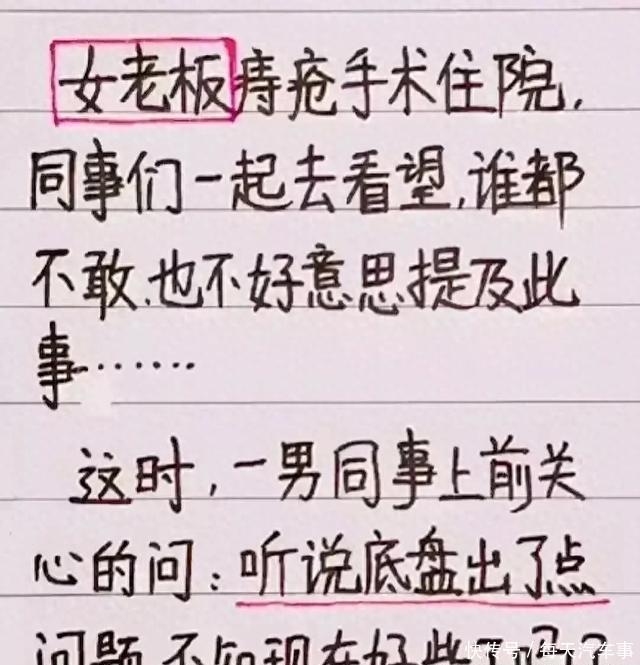 女老板痔疮手术住院，
同事们一起去看望，谁都
不敢、也不好意思提及此
事……
这时，一男同事上前关
心的问：听说底盘出了点
问题，不知现在好些
快传号/每天汽车事